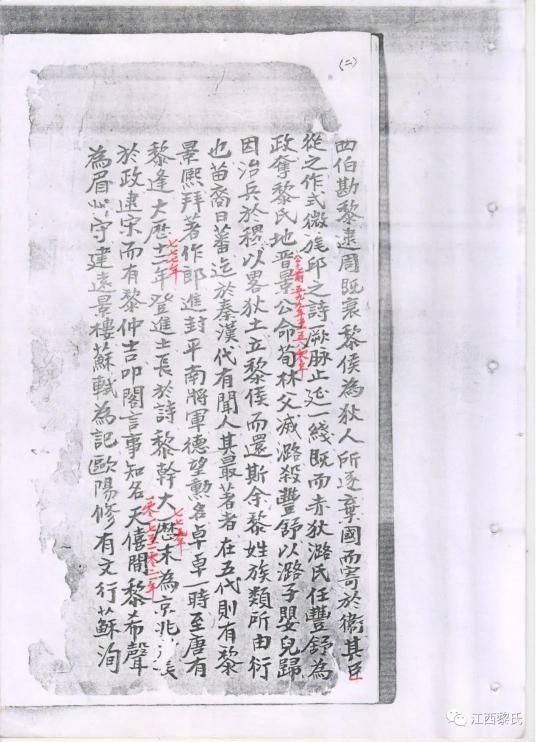 (二)
西伯勘黎建周既衰黎侯為狄人所逐棄國而寄於衛其臣
從之作式微旄邱之詩厥脉止延一綫既而赤狄潞氏任豐舒為
政奪黎氏地晋景公命荀林父滅潞殺豐舒以潞子嬰兒歸
因治兵於稷以畧狄土立黎侯而還斯余黎姓族類所由衍
也苗裔日蕃迄於秦漢代有聞人其最著者在五代則有黎
景熙拜著作郎進封平南將軍德望勲名卓卓一時至唐有
七七七年
黎逢大歷十二年登進士長於詩黎幹大歷末為京兆
七七九年
於政建宋而有黎仲吉叩閣言事知名天僖間黎希聲
為眉 守建遠景樓蘇軾為記歐陽修有文行蘇洵
江西黎氏